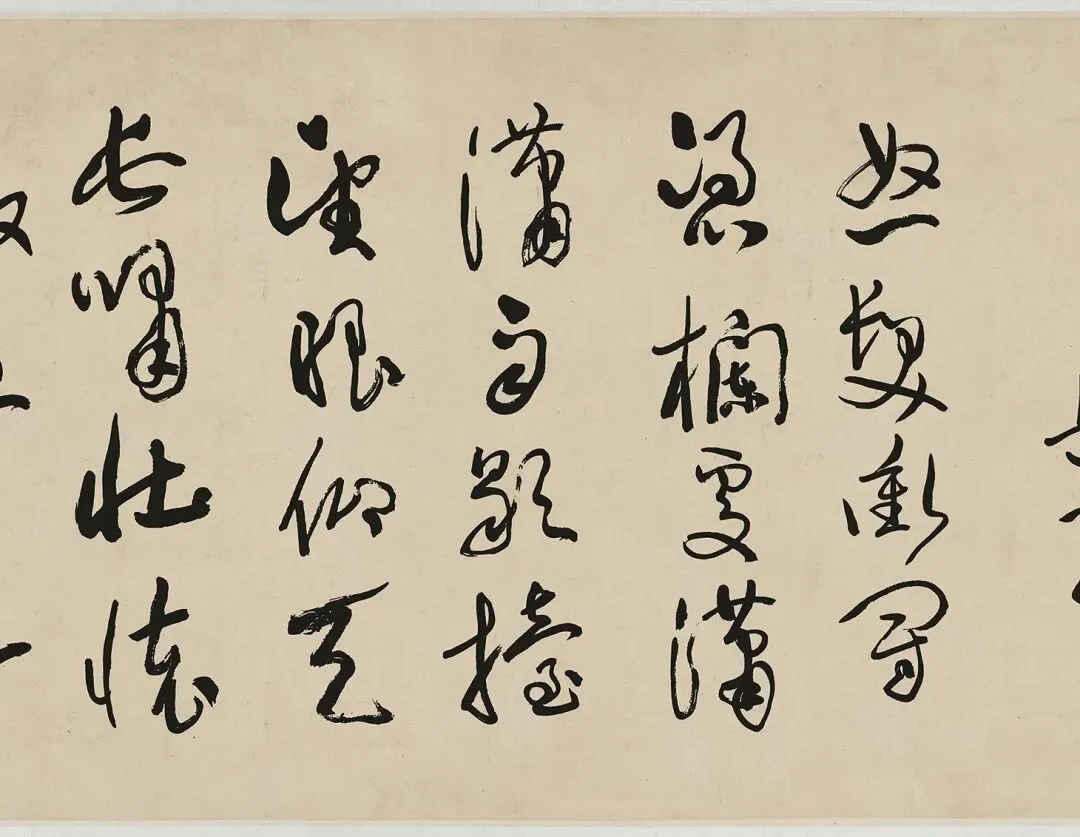 怒髮衝冠
憑欄處瀟
瀟雨歇擡
望眼仰天
長嘯壯懷